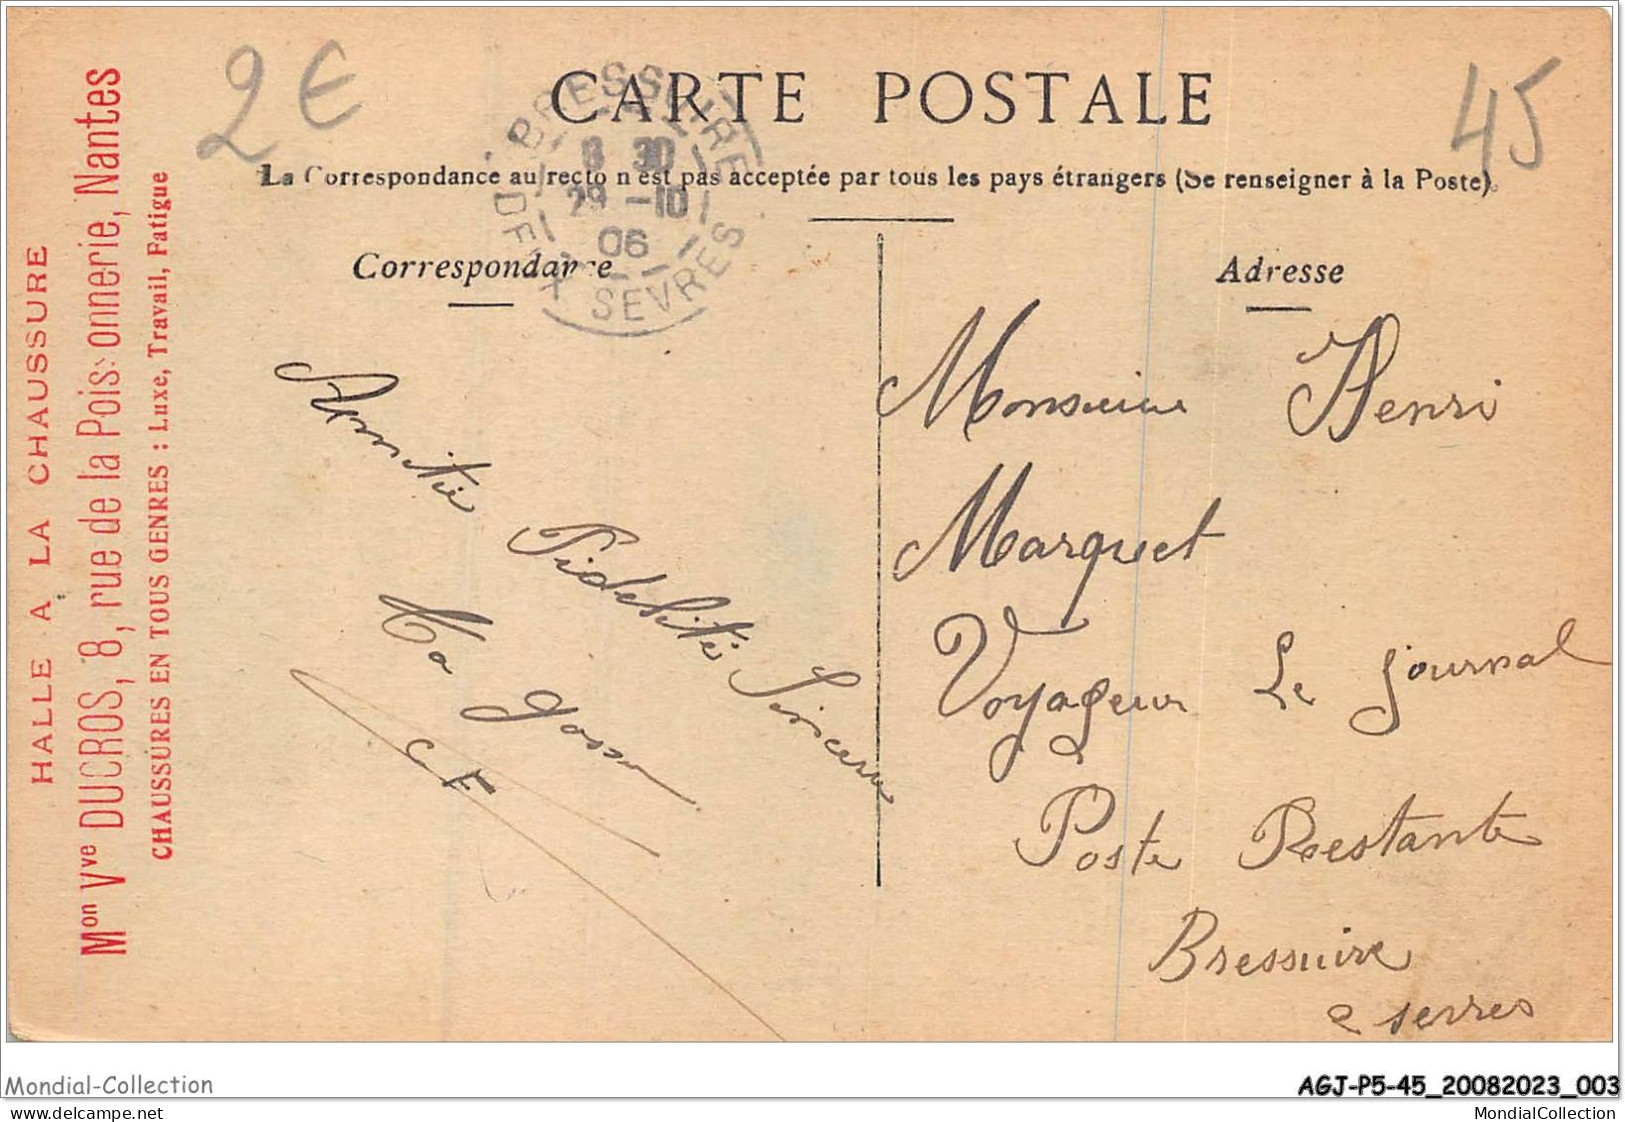 2 €
CARTE POSTALE
45
La Correspondance au recto n'est pas acceptée par tous les pays étrangers (Se renseigner à la Poste).
BRESSUIRE
8 30
29 -10
06
DEUX SEVRES
Correspondance
Adresse
HALLE A LA CHAUSSURE
Mon Vve DUCROS, 8, rue de la Poissonnerie, Nantes
CHAUSSURES EN TOUS GENRES : Luxe, Travail, Fatigue
Amitié
Fidélité Sincère
Ta gosse
Monsieur Henri
Marquet
Voyageur Le Journal
Poste Restante
Bressuire
2 sevres
Mondial-Collection
AGJ-P5-45_20082023_003
MondialCollection